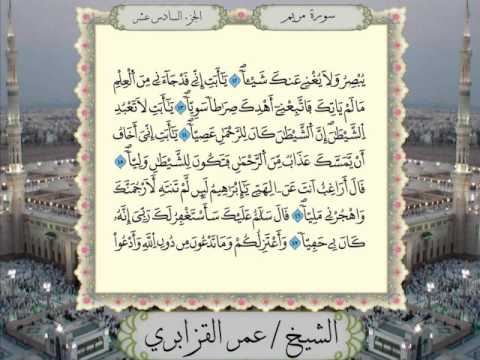 سورة مريم
الجزء السادس عشر
يُبْصِرُ وَلَا يُغْنِي عَنكَ شَيْـًٔا ٤٢ يَٰٓأَبَتِ إِنِّي قَدْ جَآءَنِي مِنَ ٱلْعِلْمِ
مَا لَمْ يَاتِكَ فَٱتَّبِعْنِيٓ أَهْدِكَ صِرَٰطًا سَوِيًّا ٤٣ يَٰٓأَبَتِ لَا تَعْبُدِ
ٱلشَّيْطَٰنَ إِنَّ ٱلشَّيْطَٰنَ كَانَ لِلرَّحْمَٰنِ عَصِيًّا ٤٤ يَٰٓأَبَتِ إِنِّيَ أَخَافُ
أَنْ يَّمَسَّكَ عَذَابٌ مِّنَ ٱلرَّحْمَٰنِ فَتَكُونَ لِلشَّيْطَٰنِ وَلِيًّا ٤٥
قَالَ أَرَاغِبٌ أَنتَ عَنَ ـالِهَتِي يَٰٓإِبْرَٰهِيمُ لَئِن لَّمْ تَنتَهِ لَأَرْجُمَنَّكَ
وَٱهْجُرْنِي مَلِيًّا ٤٦ قَالَ سَلَٰمٌ عَلَيْكَ سَأَسْتَغْفِرُ لَكَ رَبِّيَ إِنَّهُۥ
كَانَ بِي حَفِيًّا ٤٧ وَأَعْتَزِلُكُمْ وَمَا تَدْعُونَ مِن دُونِ ٱللَّهِ وَأَدْعُوا۟
الشيخ / عمر القزابري